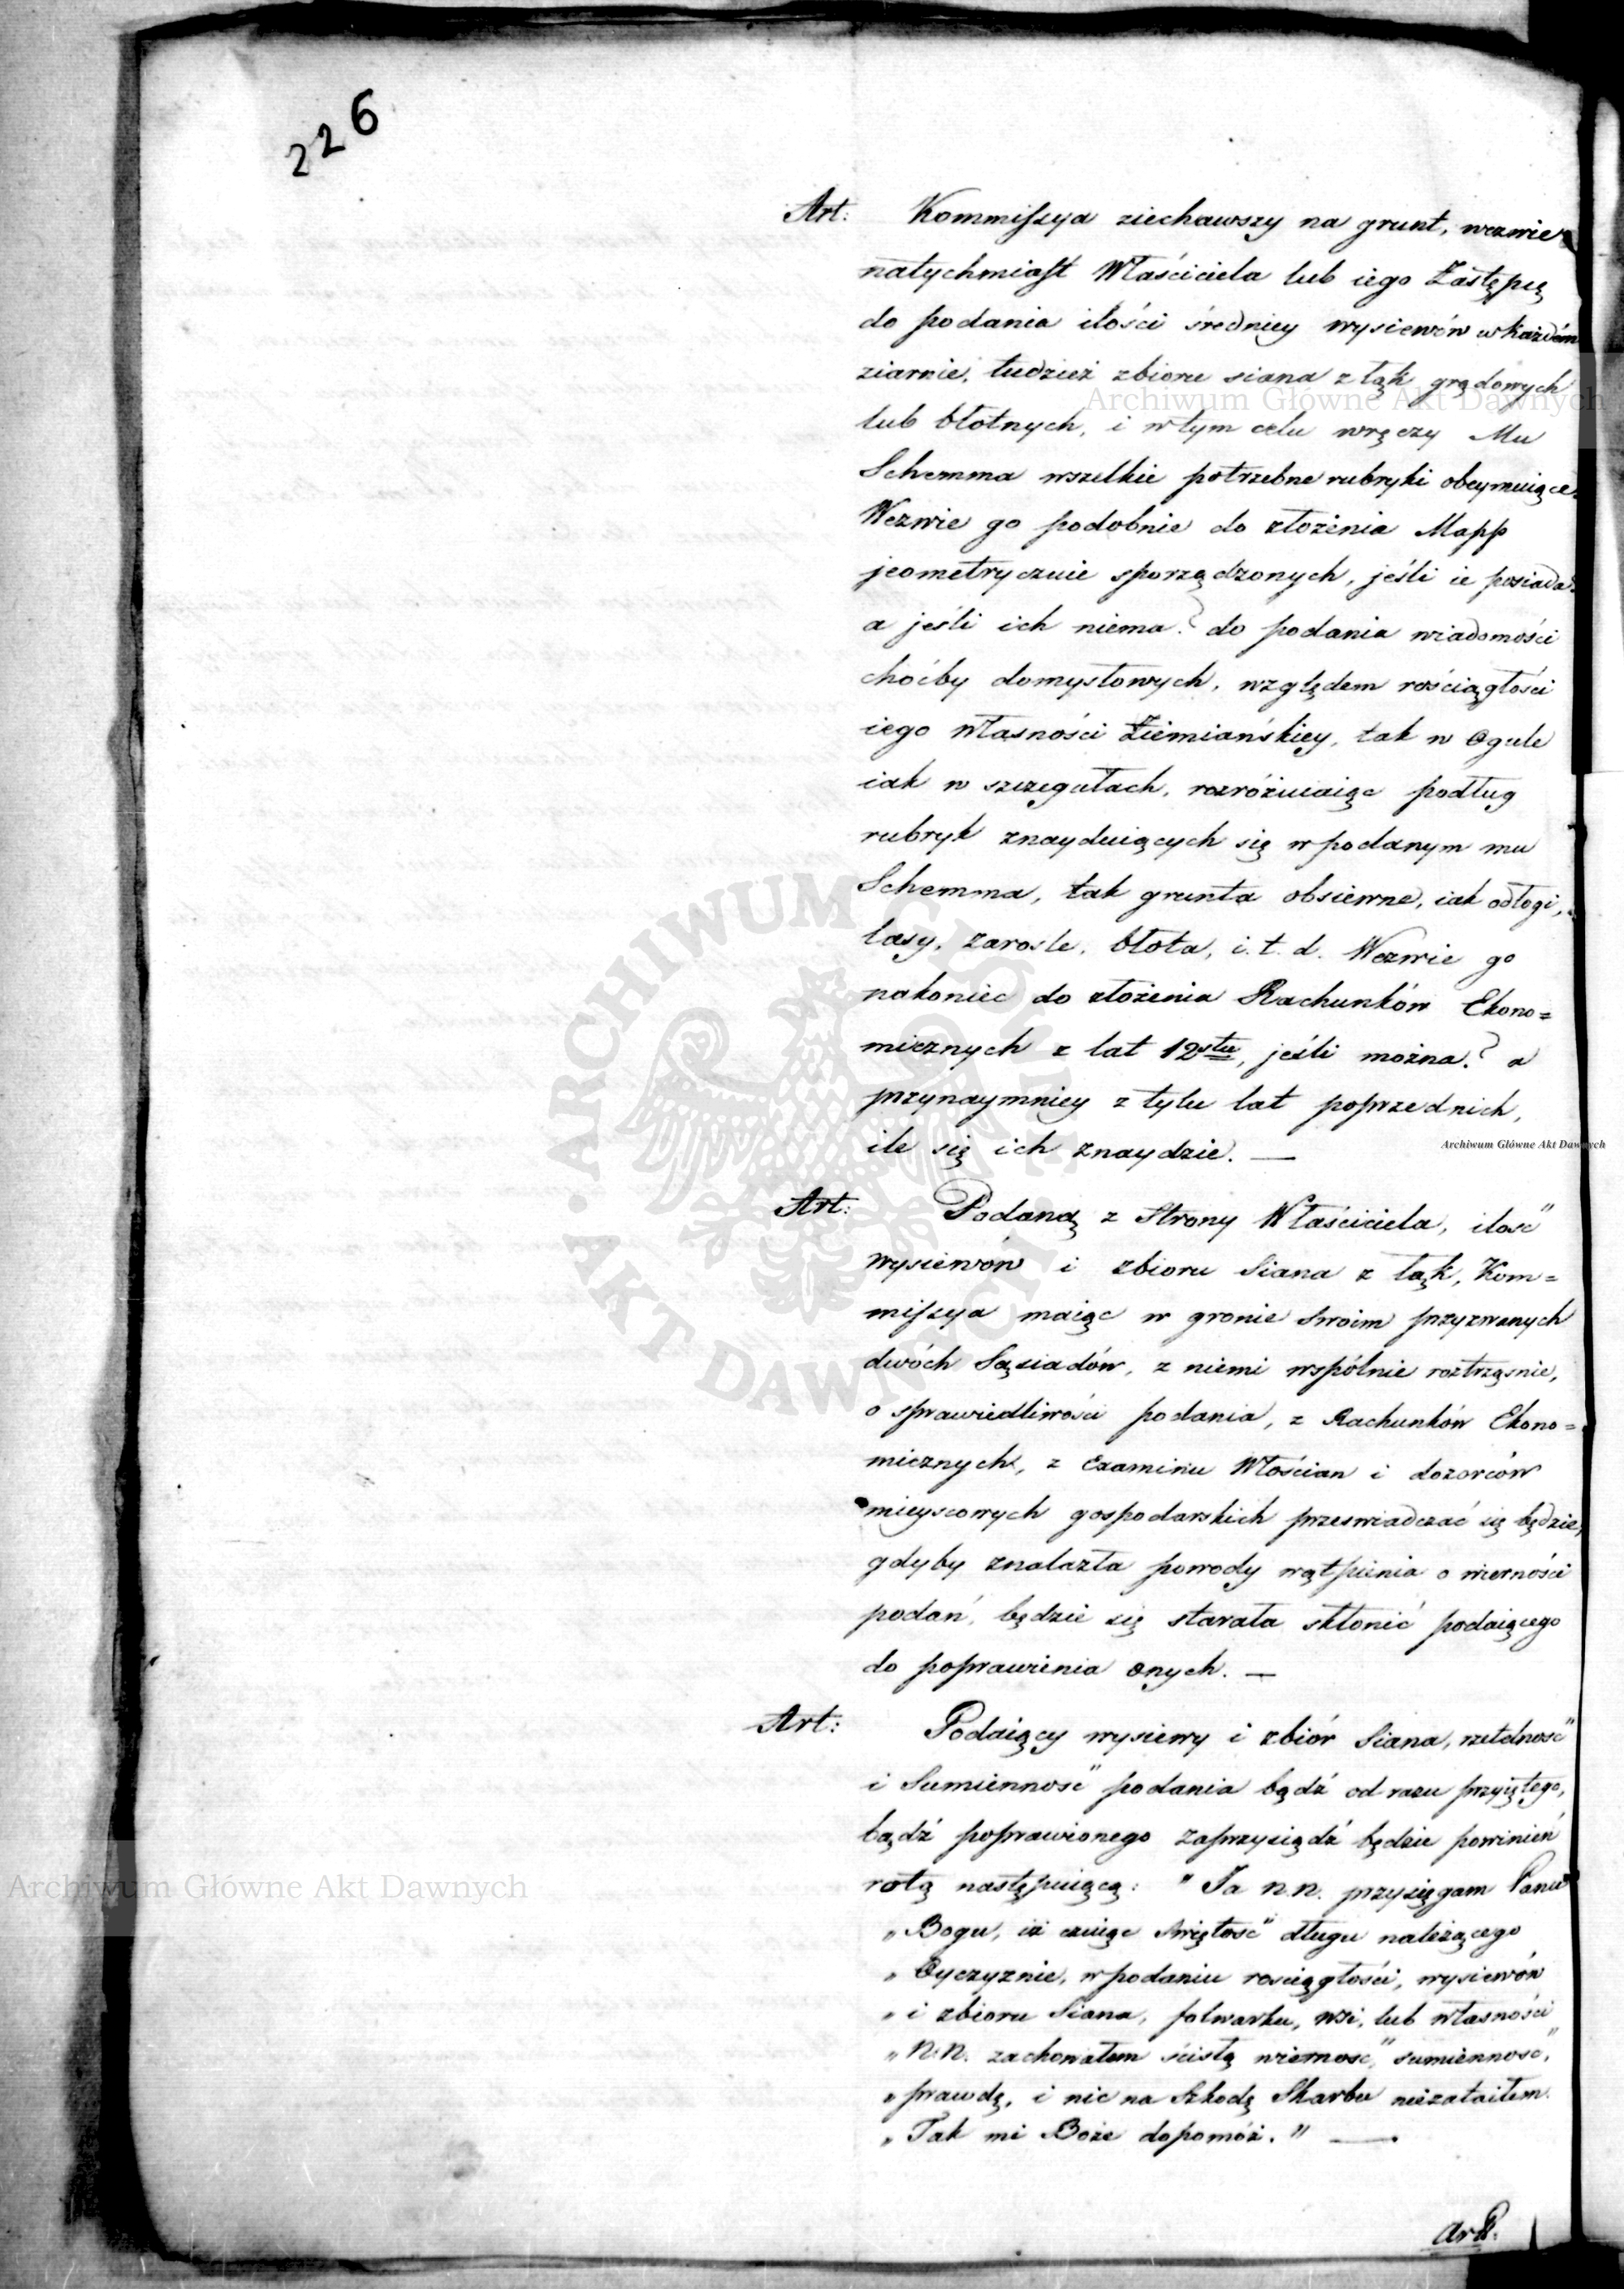 226
Art: Kommissya ziechawszy na grunt, wezwie
natychmiast Właściciela lub iego Zastępcę
do podania ilości średniey wysiewów w każdém
ziarnie, tudzież zbioru siana z łąk grądowych
lub błotnych, i w tym celu wręczy Mu
Schemma wszelkie potrzebne rubryki obeymuiące.
Wezwie go podobnie do złożenia Mapp
jeometrycznie sporządzonych, jeśli ie posiada
a jeśli ich niema? do podania wiadomości
choćby domysłowych, względem rościągłości
iego własności Ziemiańskiey, tak w Ogule
iak w szczegułach, rozróżniaiąc podług
rubryk znayduiących się w podanym mu
Schemma, tak grunta obsiewne, iak odłogi,
lasy, zarosle, błota, i. t. d. Wezwie go
nakoniec do złożenia Rachunków Ekono=
micznych z lat 12stu, jeśli można? a
przynaymniey z tylu lat poprzednich,
ile się ich znaydzie. —
Art: Podaną z Strony Właściciela, ilość
wysiewów i zbioru Siana z łąk, Kom=
missya maiąc w gronie swoim przyzwanych
dwóch Sąsiadów, z niemi wspólnie roztrząsnie,
o sprawiedliwości podania, z Rachunków Ekono=
micznych, z Examinu Włościan i dozorców
mieyscowych gospodarskich przeswiadczać się będzie,
gdyby znalazła powody wątpienia o wierności
podań, będzie się starała skłonić podaiącego
do poprawienia onych. —
Art: Podaiący wysiewy i zbiór Siana, rzetelność
i Sumienność podania bądź od razu przyiętego,
bądź poprawionego zaprzysiądz będzie powinien
rotą następuiącą: "Ja N.N. przysięgam Panu
„Bogu, iż czuiąc swiętość długu należącego
„Oyczyznie, w podaniu rosciągłości, wysiewów
„i zbioru Siana, folwarku, wsi, lub własności
„N.N. zachowałem ścisłą wierność, sumienność,
„prawdę, i nic na Szkodę Skarbu niezataiłem.
„Tak mi Boże dopomóż." —
Art:
Archiwum Główne Akt Dawnych
Archiwum Główne Akt Dawnych
Archiwum Główne Akt Dawnych
ARCHIWUM GŁÓWNE AKT DAWNYCH